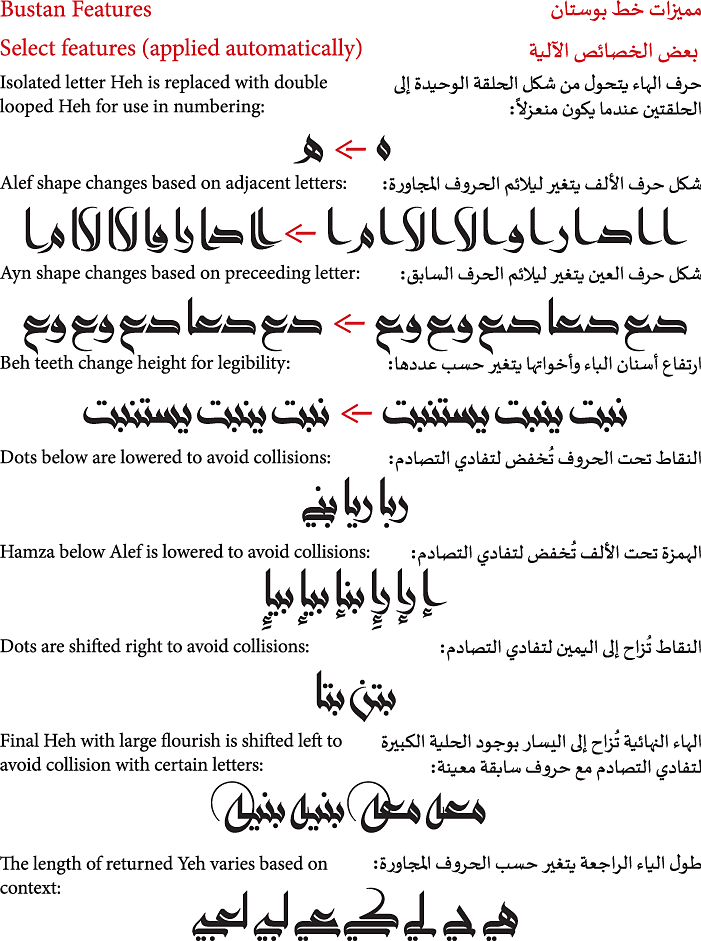 Bustan Features
مميزات خط بوستان
Select features (applied automatically)
بعض الخصائص الآلية
Isolated letter Heh is replaced with double
looped Heh for use in numbering:
حرف الهاء يتحول من شكل الحلقة الوحيدة إلى
الحلقتين عندما يكون منعزلاً:
ه ← ه
Alef shape changes based on adjacent letters:
شكل حرف الألف يتغير ليلائم الحروف المجاورة:
Ayn shape changes based on preceeding letter:
شكل حرف العين يتغير ليلائم الحرف السابق:
دع دعا دع وع وع ← دع دعا دع وع وع
Beh teeth change height for legibility:
ارتفاع أسنان الباء وأخواتها يتغير حسب عددها:
نبت ينبت يستنبت ← نبت ينبت يستنبت
Dots below are lowered to avoid collisions:
النقاط تحت الحروف تُخفض لتفادي التصادم:
ربا ريا بني
Hamza below Alef is lowered to avoid collisions:
الهمزة تحت الألف تُخفض لتفادي التصادم:
Dots are shifted right to avoid collisions:
النقاط تُزاح إلى اليمين لتفادي التصادم:
بتن بتا
Final Heh with large flourish is shifted left to
avoid collision with certain letters:
الهاء النهائية تُزاح إلى اليسار بوجود الحلية الكبيرة
لتفادي التصادم مع حروف سابقة معينة:
معه معه بنيه بنيه
The length of returned Yeh varies based on
context:
طول الياء الراجعة يتغير حسب الحروف المجاورة: